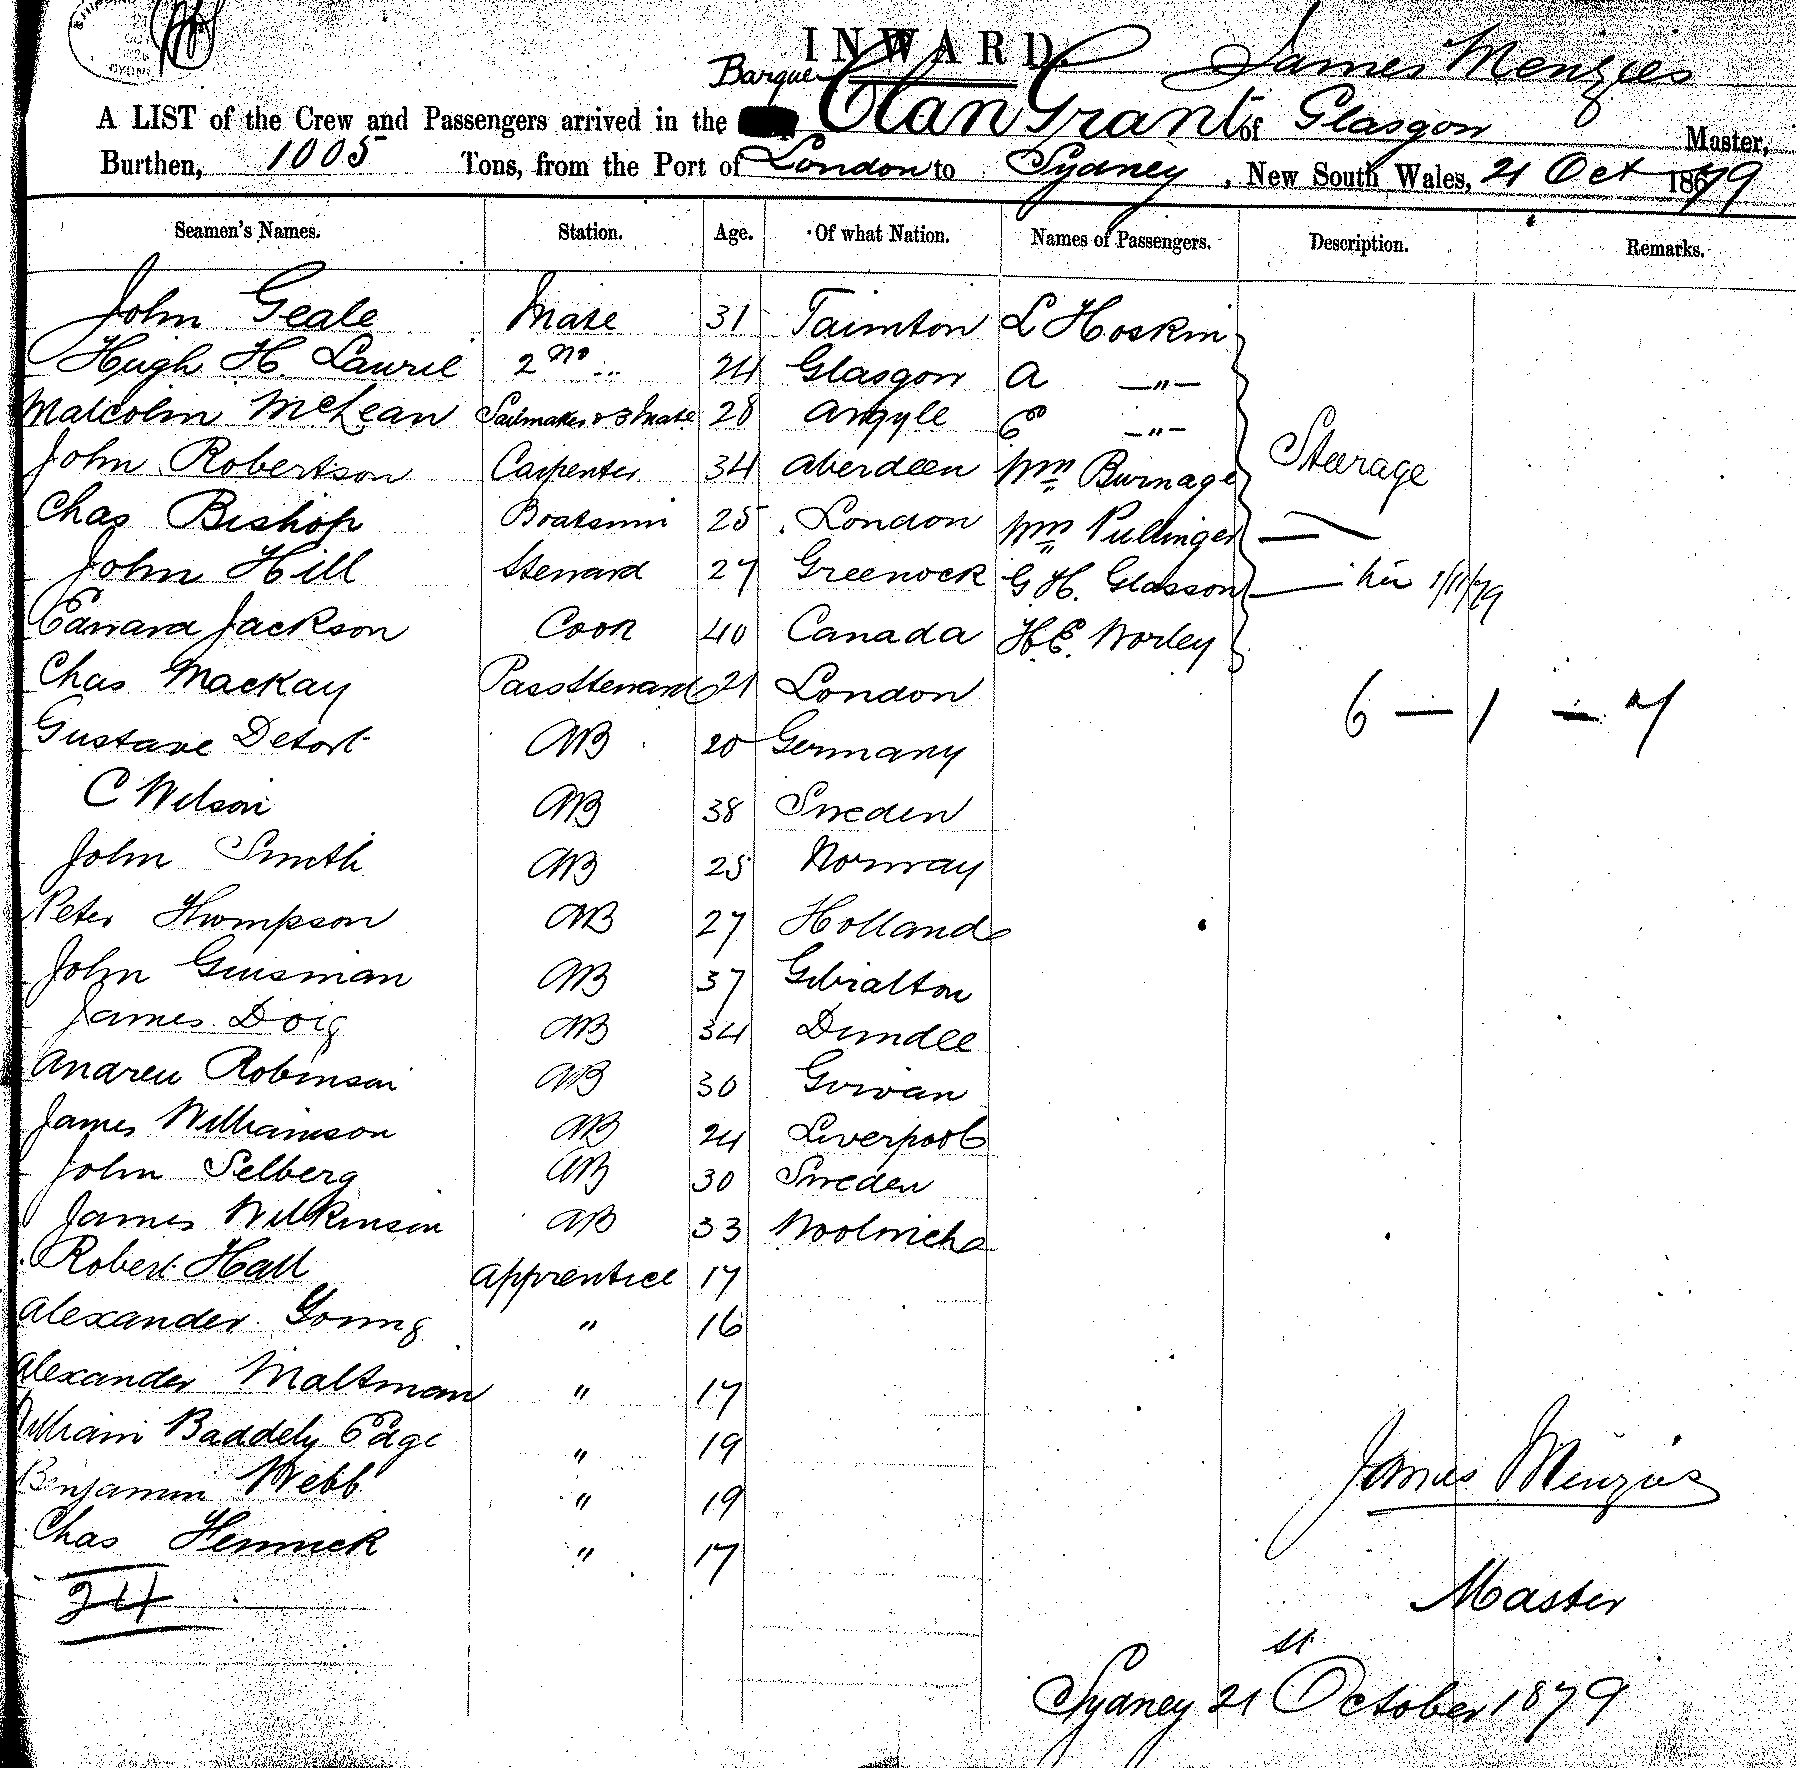 INWARD
Barque Clan Grant of Glasgow James Menzies Master,
A LIST of the Crew and Passengers arrived in the
Burthen, 1005 Tons, from the Port of London to Sydney, New South Wales, 21 Oct 1879
Seamen's Names. Station. Age. Of what Nation. Names of Passengers. Description. Remarks.
John Geale Mate 31 Taunton L Hoskin
Hugh H. Laurie 2nd " 24 Glasgow A —"—
Malcolm McLean Sailmaker & 3 Mate 28 Argyle E —"—
John Robertson Carpenter 34 Aberdeen Wm Burnage Steerage
Chas Bishop Boatswn 25 London Wm Pullinger —
John Hill Steward 27 Greenock G. H. Glasson — 1/11/79
Edward Jackson Cook 40 Canada H.E. Worley
Chas Mackay Pass Steward 21 London
6 — 1 — 7
Gustave Detort AB 20 Germany
C Wilson AB 38 Sweden
John Smith AB 25 Norway
Peter Thompson AB 27 Holland
John Guisman AB 37 Gibraltar
James Doig AB 34 Dundee
Andrew Robinson AB 30 Govan
James Williamson AB 24 Liverpool
John Selberg AB 30 Sweden
James Wilkinson AB 33 Woolwich
Robert Hall Apprentice 17
Alexander Young " 16
Alexander Maltman " 17
William Baddely Edge " 19
Benjamin Webb " 19
Chas Hennick " 17
24
James Menzies
Master
Sydney 21st October 1879